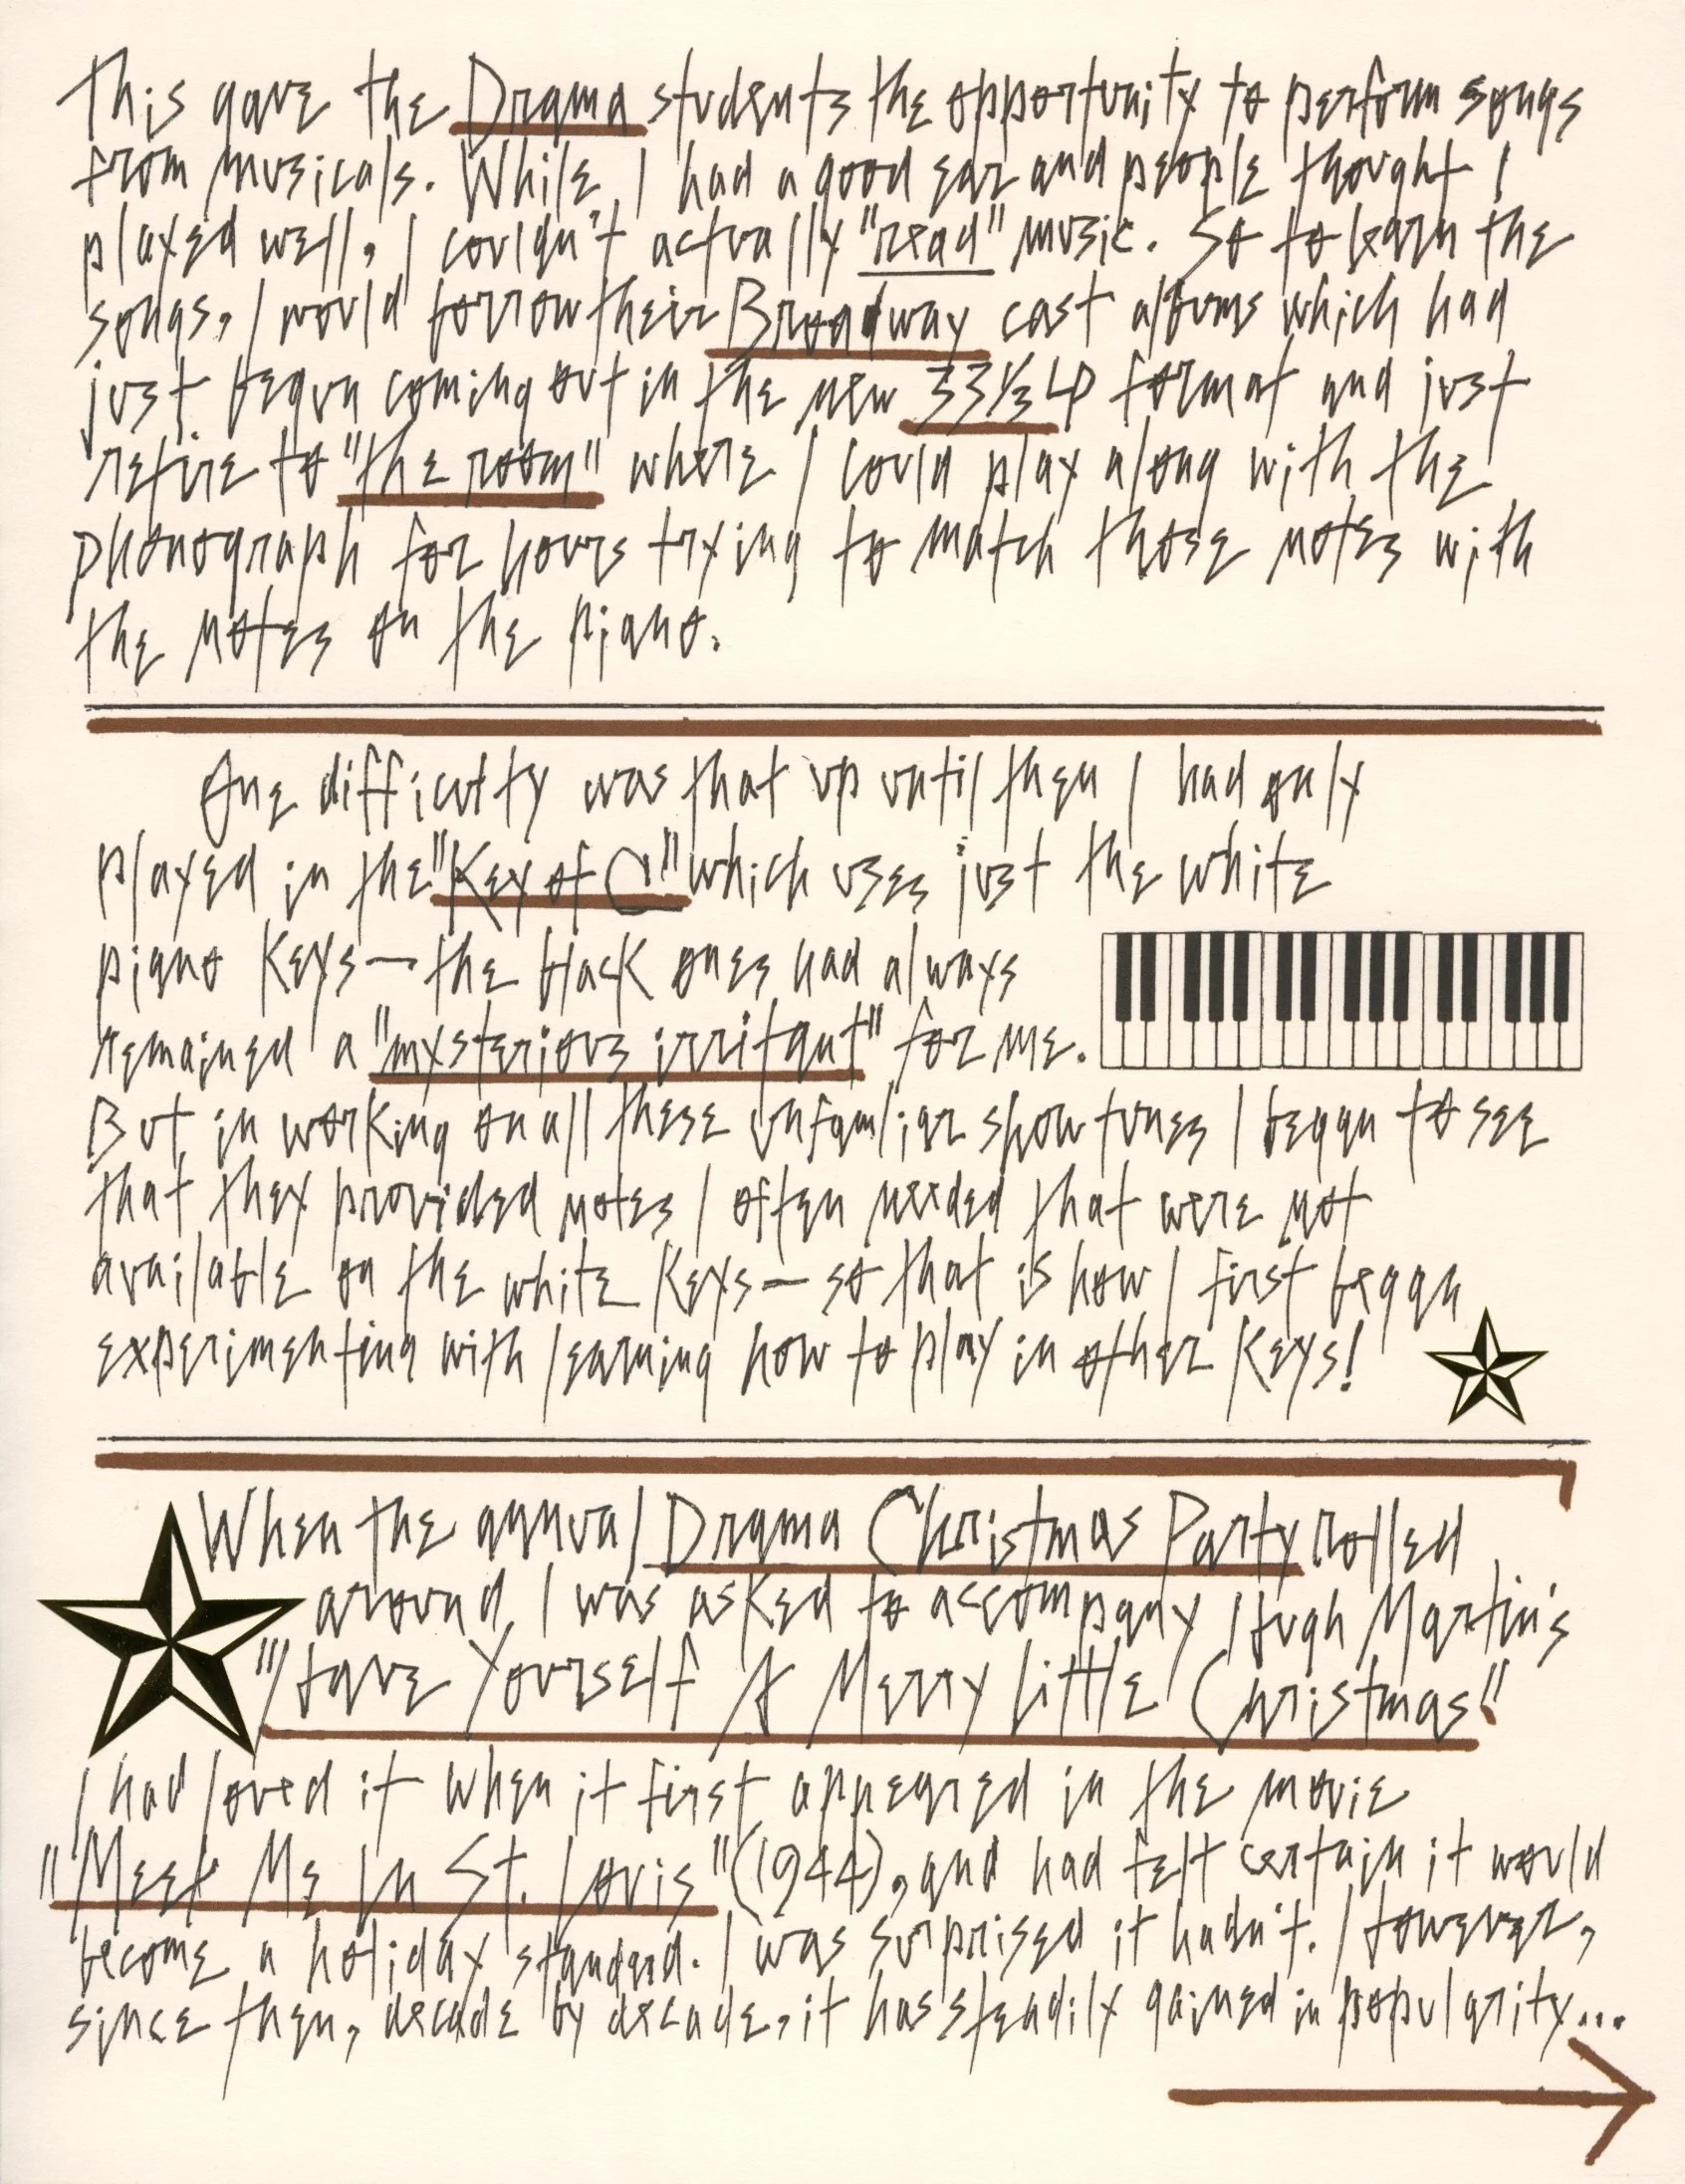 This gave the Drama students the opportunity to perform songs
from musicals. While I had a good ear and people thought I
played well, I couldn't actually "read" music. So to learn the
songs, I would borrow their Broadway cast albums which had
just begun coming out in the new 33⅓ LP format and just
retire to "the room" where I could play along with the
phonograph for hours trying to match those notes with
the notes on the piano.
One difficulty was that up until then I had only
played in the "Key of C" which uses just the white
piano keys — the black ones had always
remained a "mysterious irritant" for me.
But in working on all these unfamiliar show tunes I began to see
that they provided notes I often needed that were not
available on the white keys — so that is how I first began
experimenting with learning how to play in other keys!
When the annual Drama Christmas Party rolled
around, I was asked to accompany Hugh Martin's
"Have Yourself A Merry Little Christmas"
I had loved it when it first appeared in the movie
"Meet Me In St. Louis" (1944), and had felt certain it would
become a holiday standard. I was surprised it hadn't. However,
since then, decade by decade, it has steadily gained in popularity...